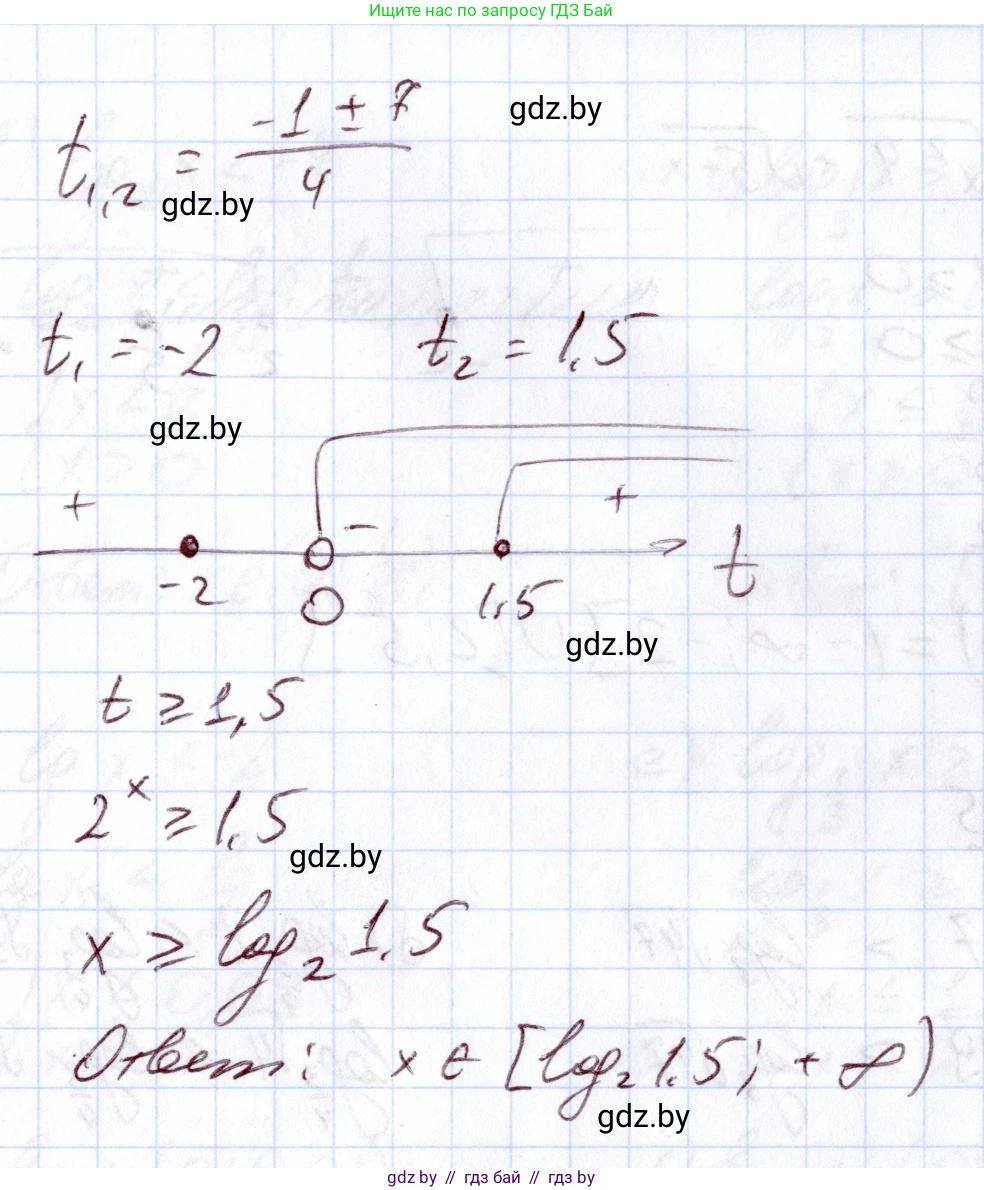 Ищите нас по запросу ГДЗ Бай
t₁,₂ = (-1 ± 7)/4
gdz.by
gdz.by
t₁ = -2 t₂ = 1,5
gdz.by
+ - +
-2 0 1,5 t
gdz.by
t ≥ 1,5
2ˣ ≥ 1,5
gdz.by
x ≥ log₂ 1,5
Ответ: x ∈ [log₂ 1,5; +∞)
gdz.by
gdz.by // гдз бай // гдз by